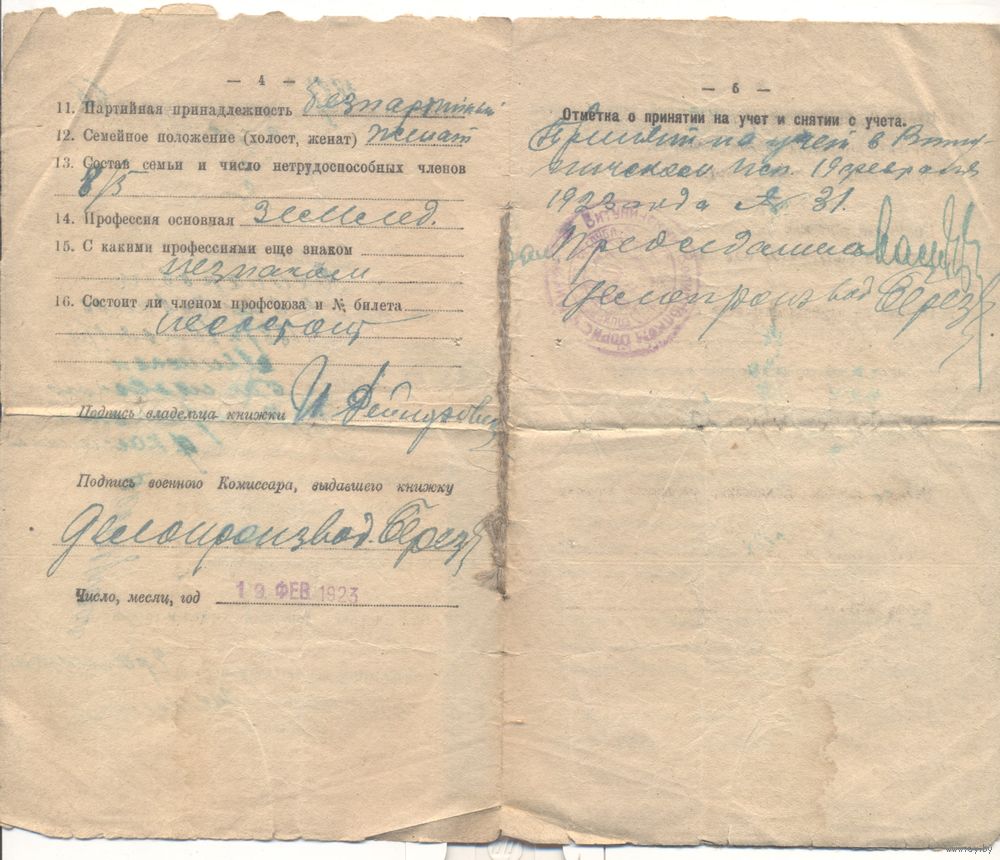 — 4 —
11. Партийная принадлежность безпартийный
12. Семейное положение (холост, женат) женат
13. Состав семьи и число нетрудоспособных членов
8/5
14. Профессия основная землед.
15. С какими профессиями еще знаком
незнаком
16. Состоит ли членом профсоюза и № билета
несостоит
Подпись владельца книжки И.
Подпись военного Комиссара, выдавшего книжку
Делопроизвод. Берез
Число, месяц, год 19 ФЕВ 1923
— 5 —
Отметка о принятии на учет и снятии с учета.
Принят на учет в Виту-
ничском исп. 19 февраля
1923 года № 31.
Председателя
Делопроизвод Берез